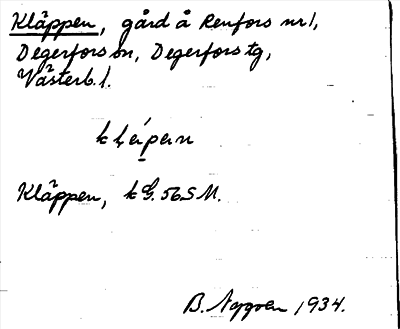 Kläppen, gård å Renfors nr 1,
Degerfors sn, Degerfors tg,
Västerb. l.
Kläppen, k G. 56 S M.
B. Nygren 1934.